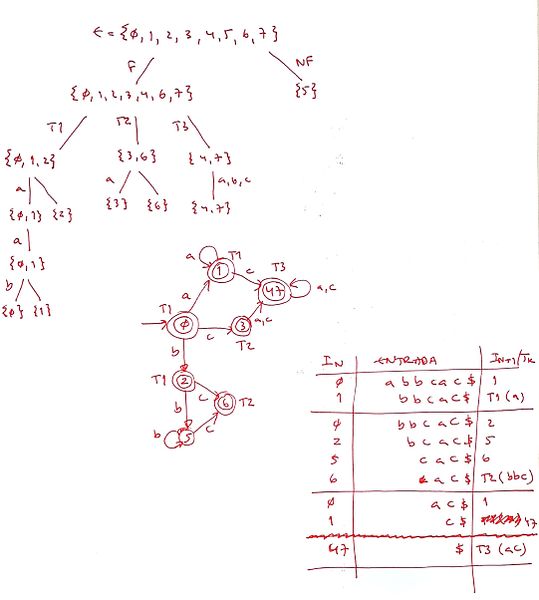 E = {0, 1, 2, 3, 4, 5, 6, 7}
F NF
{0, 1, 2, 3, 4, 6, 7} {5}
T1 T2 T3
{0, 1, 2} {3, 6} {4, 7}
a a a, b, c
{0, 1} {2} {3} {6} {4, 7}
a
{0, 1}
b
{0} {1}
a T1
1 c T3
47 a, c
T1 a a, c
0 c 3
T2
b
T1 2 c 6 T2
b c
b 5
IN ENTRADA IN+1/TK
0 a b b c a c $ 1
1 b b c a c $ T1 (a)
0 b b c a c $ 2
2 b c a c $ 5
5 c a c $ 6
6 a c $ T2 (bbc)
0 a c $ 1
1 c $ 47
47 $ T3 (ac)